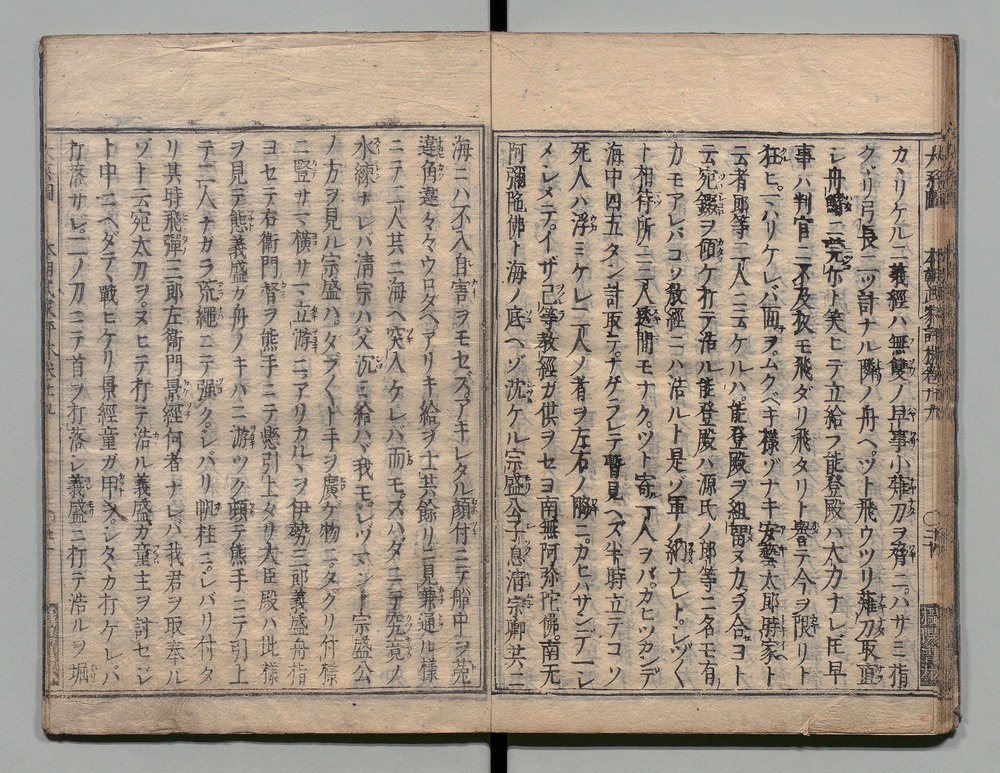 カヽリケルニ義經ハ無雙ノ早事小薙刀ヲ脅ニハサミ指
クヾリ弓長二ツ計ナル隣ノ舟ヘツト飛ウツリ薙刀取直
シ舟ニテ笑ヒテ立給フ能登殿ハ大力ナレ𪜈早
事ハ判官ニ不及玖モ飛ダリ飛タリト譽テ今ヲ限リト
狂ヒハリケレバ面ヲムクベキ樣ゾナキ安藝太郎時家ト
云者郎等二人ニ云ケルハ能登殿ヲ組留ヌ力ヲ合ヨト
云宛錣ヲ傾ケ打テ浩ル能登殿ハ源氏ノ郎等ニ名モ有
力モアレバコソ教經ニハ浩ルト是ゾ軍ノ納ナレトシヅく
ト相待所ニ三人透間モナクツト寄一人ヲバガヒツカンデ
海中四五タン計取テナゲラレテ暫見ヘズ半時立テコソ
死人ハ浮ミケレ二人ノ者ヲ左右ノ脇ニカヒハサンデ一シ
メシメテイザ己等教經ガ供ヲセヨ南無阿弥陀佛南无
阿彌陀佛ト海ノ底ヘゾ沈ケル宗盛公子息清宗卿共ニ
海ニハ不入自害ヲモセズアキレタル顔付ニテ船中ヲ荒
違角違々々ウロタヘアリキ給ヲ士共餘リニ見兼通ル樣
ニテ二人共ニ海ヘ突入ケレバ而モスハダニテ究竟ノ
水練ナレバ清宗ハ父沉ミ給ハヾ我モシヅマント宗盛公
ノ方ヲ見ル宗盛ハタブくト手ヲ廣ゲ物ニタグリ付樣
ニ豎サマ横サマ立游ニアリカルヽヲ伊勢三郎義盛舟指
ヨセテ右衛門督ヲ熊手ニテ懸引上タリ大臣殿ハ此樣
ヲ見テ態義盛カ舟ノキハニ游ツク頓テ熊手ニテ引上
テ二人ナガラ荒繩ニテ强クシバリ帆柱ニシバリ付タ
リ其時飛彈三郎左衞門景經何者ナレバ我君ヲ取奉ル
ゾト云宛太刀ヲヌヒテ打テ浩ル義盛ガ童主ヲ討セシ
ト中ニヘダテ戰ヒケリ景經童ガ甲ヲシタヽカ打ケレバ
打落サレ二ノ刀ニテ首ヲ打落シ義盛ニ打テ浩ルヲ堀